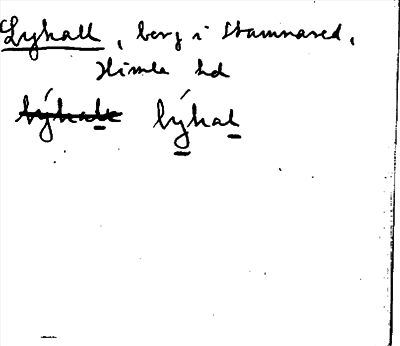 Lyhall, berg i Stamnared,
Himle hd
lýhal